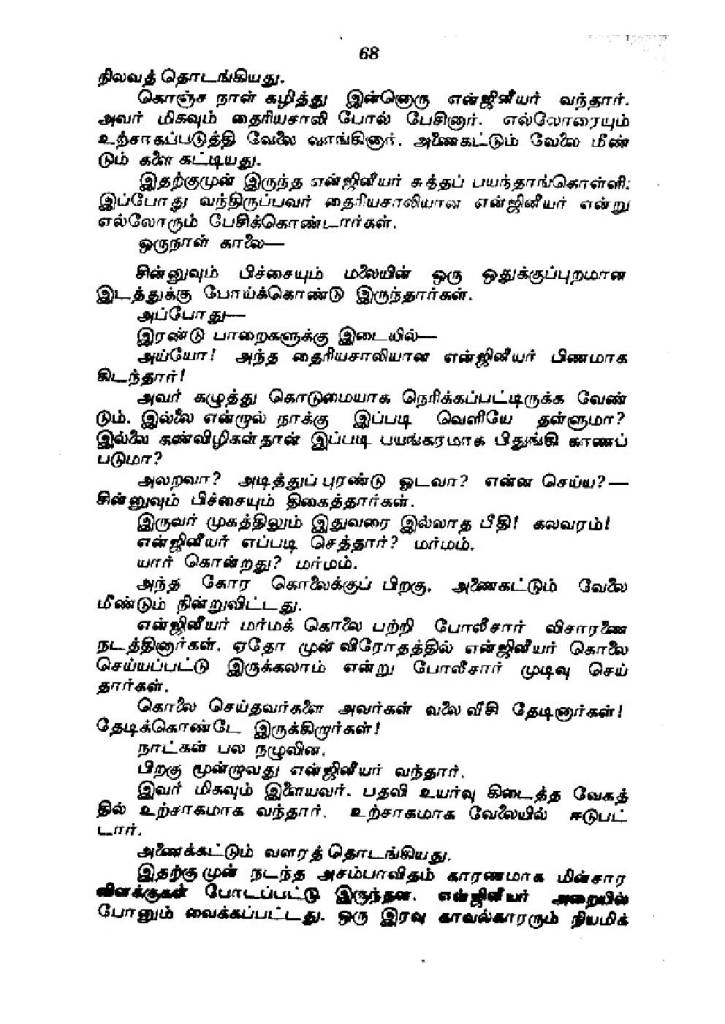 68
நிலவத் தொடங்கியது.
கொஞ்ச நாள் கழித்து இன்னொரு என்ஜினீயர் வந்தார்.
அவர் மிகவும் தைரியசாலி போல் பேசினார். எல்லோரையும்
உற்சாகப்படுத்தி வேலை வாங்கினார். அணைகட்டும் வேலை மீண்
டும் களை கட்டியது.
இதற்குமுன் இருந்த என்ஜினீயர் சுத்தப் பயந்தாங்கொள்ளி;
இப்போது வந்திருப்பவர் தைரியசாலியான என்ஜினீயர் என்று
எல்லோரும் பேசிக்கொண்டார்கள்.
ஒருநாள் காலை—
சின்னுவும் பிச்சையும் மலையின் ஒரு ஒதுக்குப்புறமான
இடத்துக்கு போய்க்கொண்டு இருந்தார்கள்.
அப்போது—
இரண்டு பாறைகளுக்கு இடையில்—
அய்யோ! அந்த தைரியசாலியான என்ஜினீயர் பிணமாக
கிடந்தார்!
அவர் கழுத்து கொடுமையாக நெரிக்கப்பட்டிருக்க வேண்
டும். இல்லை என்றால் நாக்கு இப்படி வெளியே தள்ளுமா?
இல்லை கண்விழிகள்தான் இப்படி பயங்கரமாக பிதுங்கி காணப்
படுமா?
அலறவா? அடித்துப் புரண்டு ஓடவா? என்ன செய்ய?—
சின்னுவும் பிச்சையும் திகைத்தார்கள்.
இருவர் முகத்திலும் இதுவரை இல்லாத பீதி! கலவரம்!
என்ஜினீயர் எப்படி செத்தார்? மர்மம்.
யார் கொன்றது? மர்மம்.
அந்த கோர கொலைக்குப் பிறகு, அணைகட்டும் வேலை
மீண்டும் நின்றுவிட்டது.
என்ஜினீயர் மர்மக் கொலை பற்றி போலீசார் விசாரணை
நடத்தினார்கள். ஏதோ முன் விரோதத்தில் என்ஜினீயர் கொலை
செய்யப்பட்டு இருக்கலாம் என்று போலீசார் முடிவு செய்
தார்கள்.
கொலை செய்தவர்களை அவர்கள் வலை வீசி தேடினார்கள்!
தேடிக்கொண்டே இருக்கிறார்கள்!
நாட்கள் பல நழுவின.
பிறகு மூன்றாவது என்ஜினீயர் வந்தார்.
இவர் மிகவும் இளையவர். பதவி உயர்வு கிடைத்த வேகத்
தில் உற்சாகமாக வந்தார். உற்சாகமாக வேலையில் ஈடுபட்
டார்.
அணைக்கட்டும் வளரத் தொடங்கியது.
இதற்கு முன் நடந்த அசம்பாவிதம் காரணமாக மின்சார
விளக்குகள் போடப்பட்டு இருந்தன. என்ஜினீயர் அறையில்
போனும் வைக்கப்பட்டது. ஒரு இரவு காவல்காரரும் நியமிக்